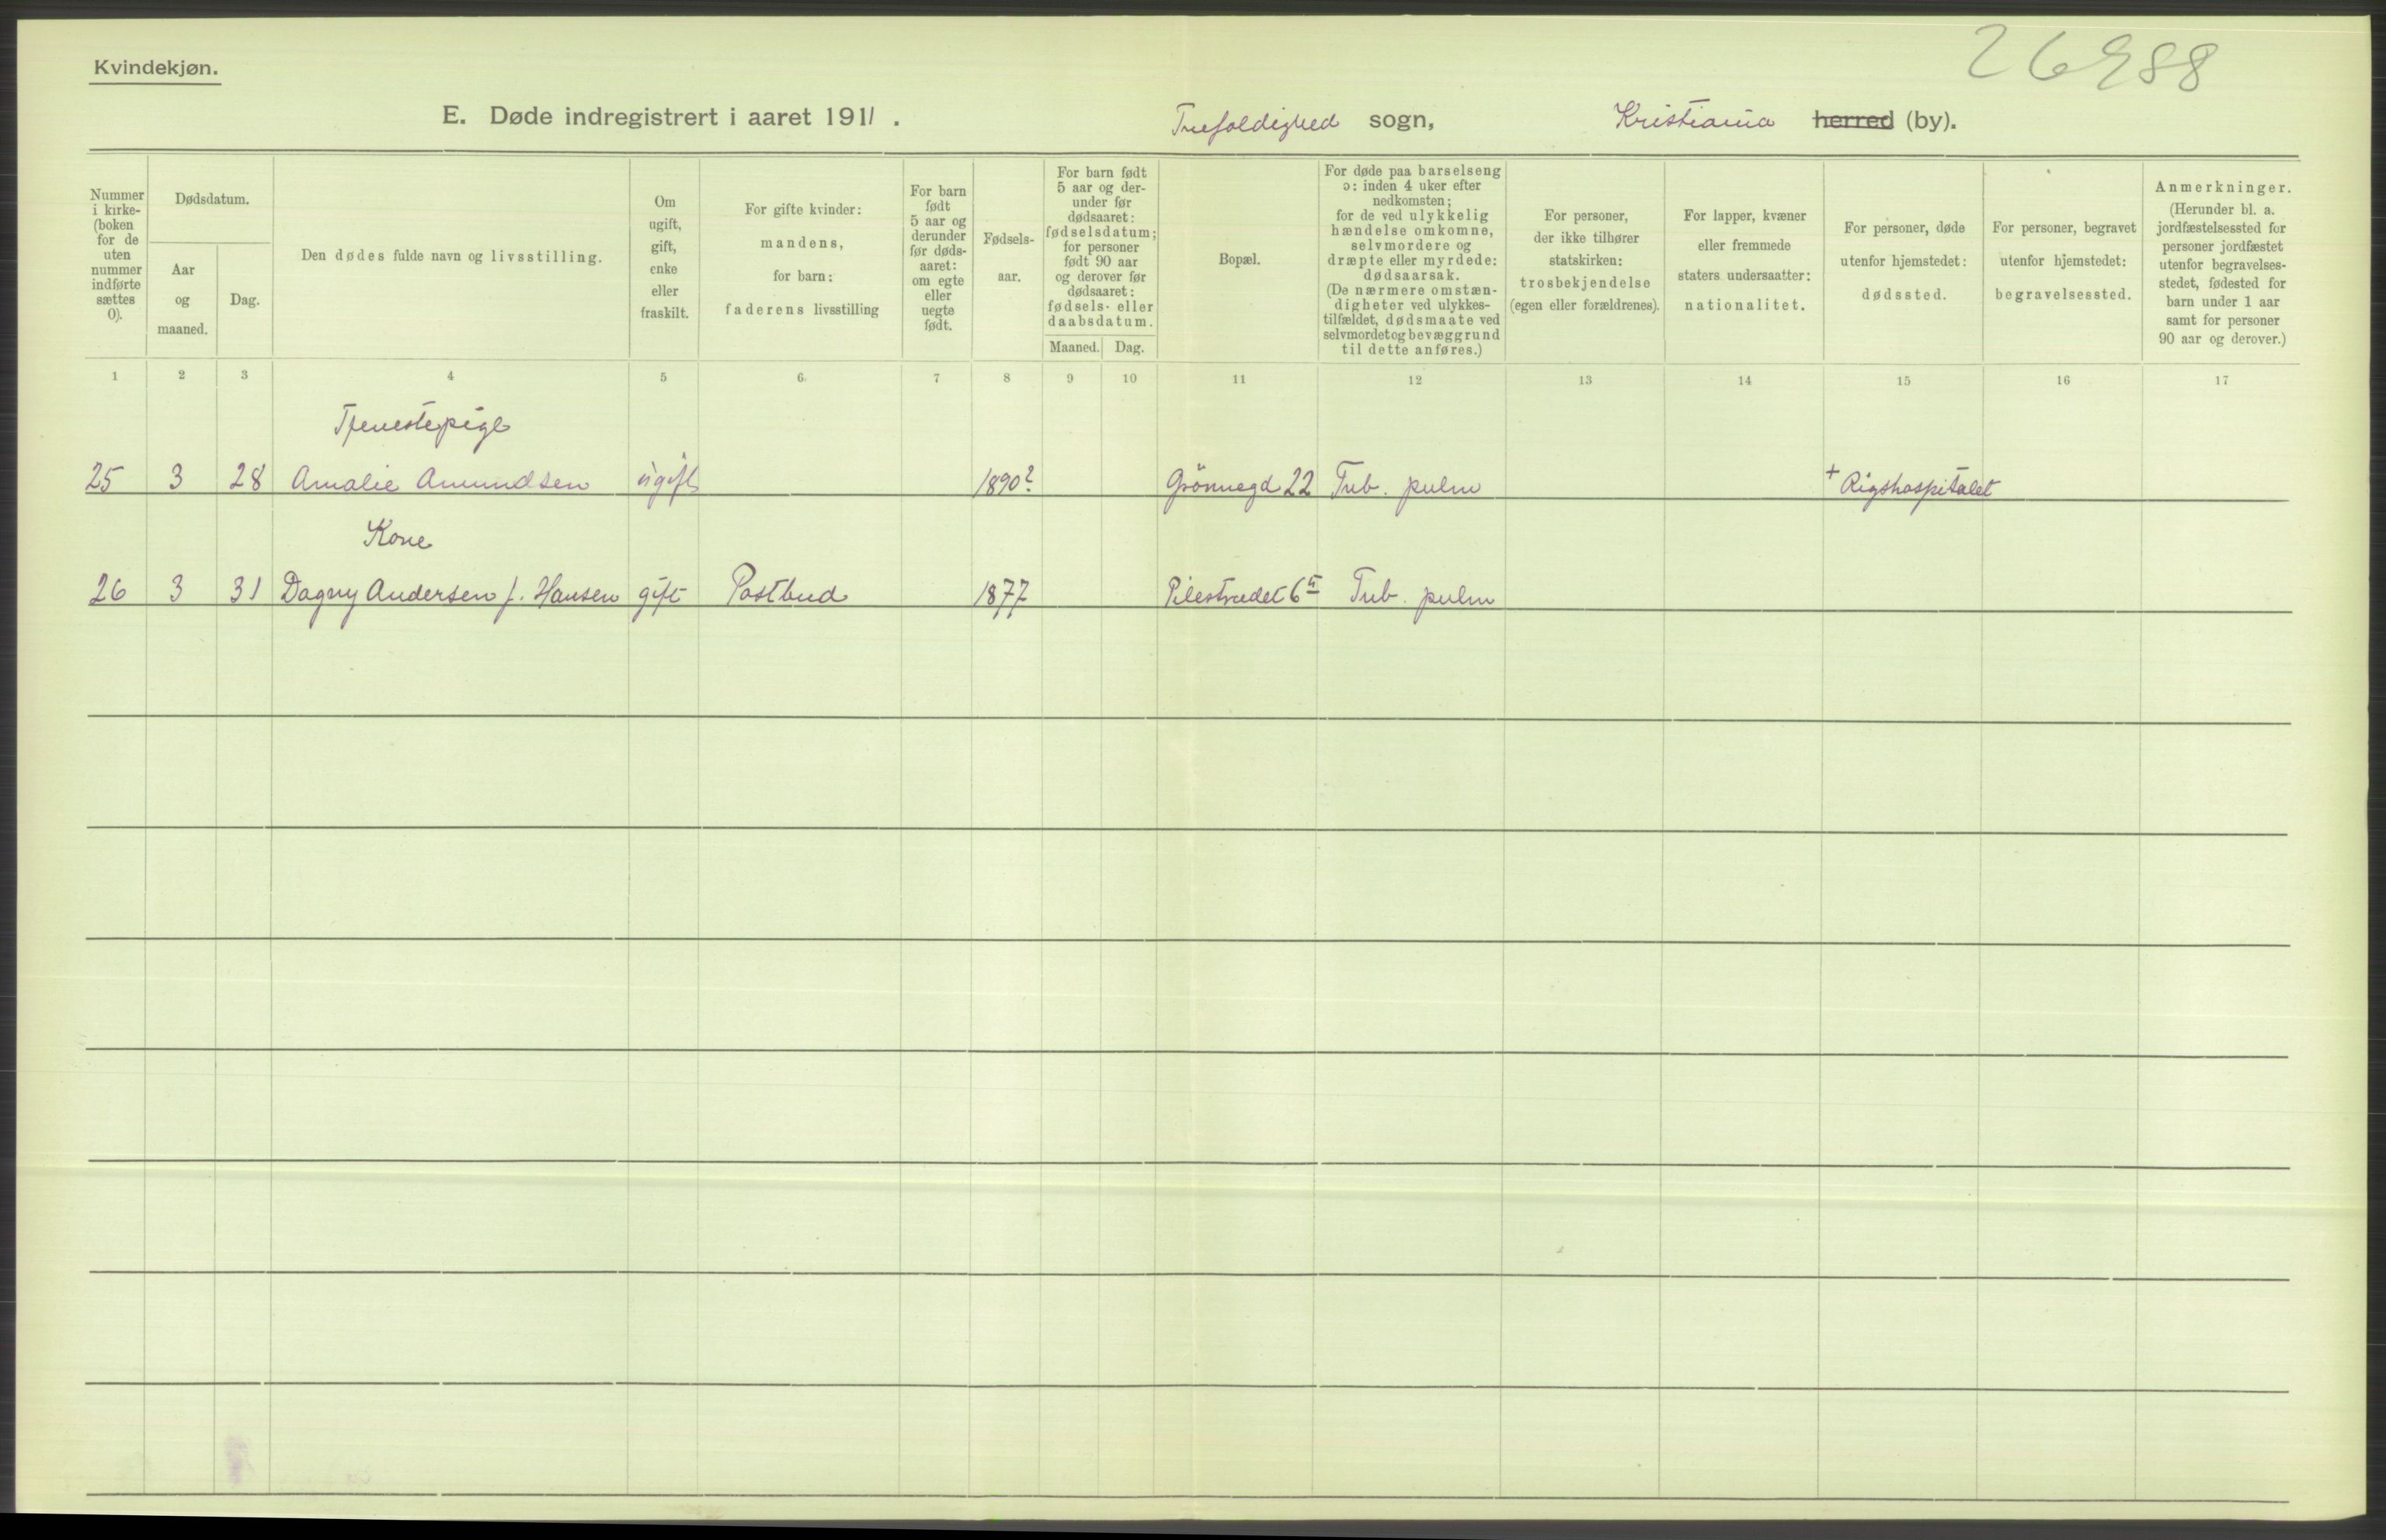 Kvindekjøn.
E. Døde indregistrert i aaret 1911. Trefoldighed sogn, Kristiania herred (by).
Nummer i kirke-(boken for de uten nummer indførte sættes 0).
Dødsdatum.
Aar og maaned.
Dag.
Den dødes fulde navn og livsstilling.
Om ugift, gift, enke eller fraskilt.
For gifte kvinder: mandens, for barn: faderens livsstilling
For barn født 5 aar og derunder før døds-aaret: om egte eller uegte født.
Fødsels-aar.
For barn født 5 aar og der-under før dødsaaret: fødselsdatum; for personer født 90 aar og derover før dødsaaret: fødsels- eller daabsdatum.
Maaned. Dag.
Bopæl.
For døde paa barselseng ɔ: inden 4 uker efter nedkomsten; for de ved ulykkelig hændelse omkomne, selvmordere og dræpte eller myrdede: dødsaarsak. (De nærmere omstæn-digheter ved ulykkes-tilfældet, dødsmaate ved selvmordet og bevæggrund til dette anføres.)
For personer, der ikke tilhører statskirken: trosbekjendelse (egen eller forældrenes).
For lapper, kvæner eller fremmede staters undersaatter: nationalitet.
For personer, døde utenfor hjemstedet: dødssted.
For personer, begravet utenfor hjemstedet: begravelsessted.
Anmerkninger. (Herunder bl. a. jordfæstelsessted for personer jordfæstet utenfor begravelses-stedet, fødested for barn under 1 aar samt for personer 90 aar og derover.)
1 2 3 4 5 6. 7 8 9 10 11 12 13 14 15 16 17
Tjenestepige
25 3 28 Amalie Amundsen ugift 1890? Grönnegd 22 Tub. pulm + Rigshospitalet
Kone
26 3 31 Dagny Andersen f. Hansen gift Postbud 1877 Pilestrædet 6 Tub. pulm